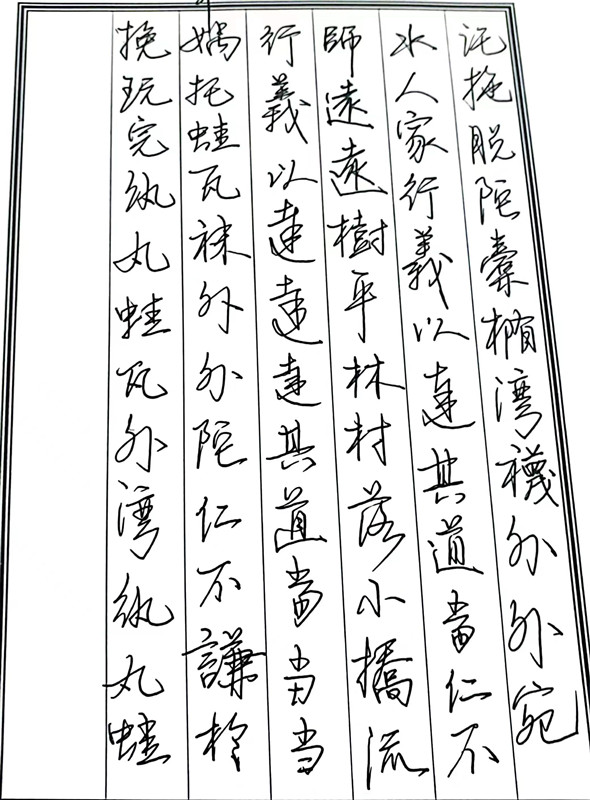 託拖脱陀橐椭湾襪外外宛
水人家行義以達其道當仁不
師遠遠樹平林村落小橋流
行義以達達達其道當当当
娲托蛙瓦袜外外陀仁不謙柃
挽玩完纨丸蛙瓦外湾纨丸蛙